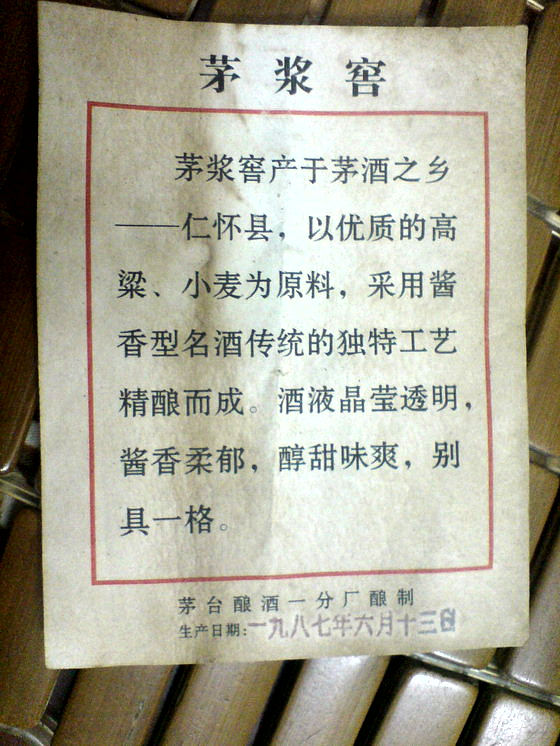 茅浆窖
茅浆窖产于茅酒之乡
——仁怀县，以优质的高
粱、小麦为原料，采用酱
香型名酒传统的独特工艺
精酿而成。酒液晶莹透明，
酱香柔郁，醇甜味爽，别
具一格。
茅台酿酒一分厂酿制
生产日期:一九八七年六月十三日